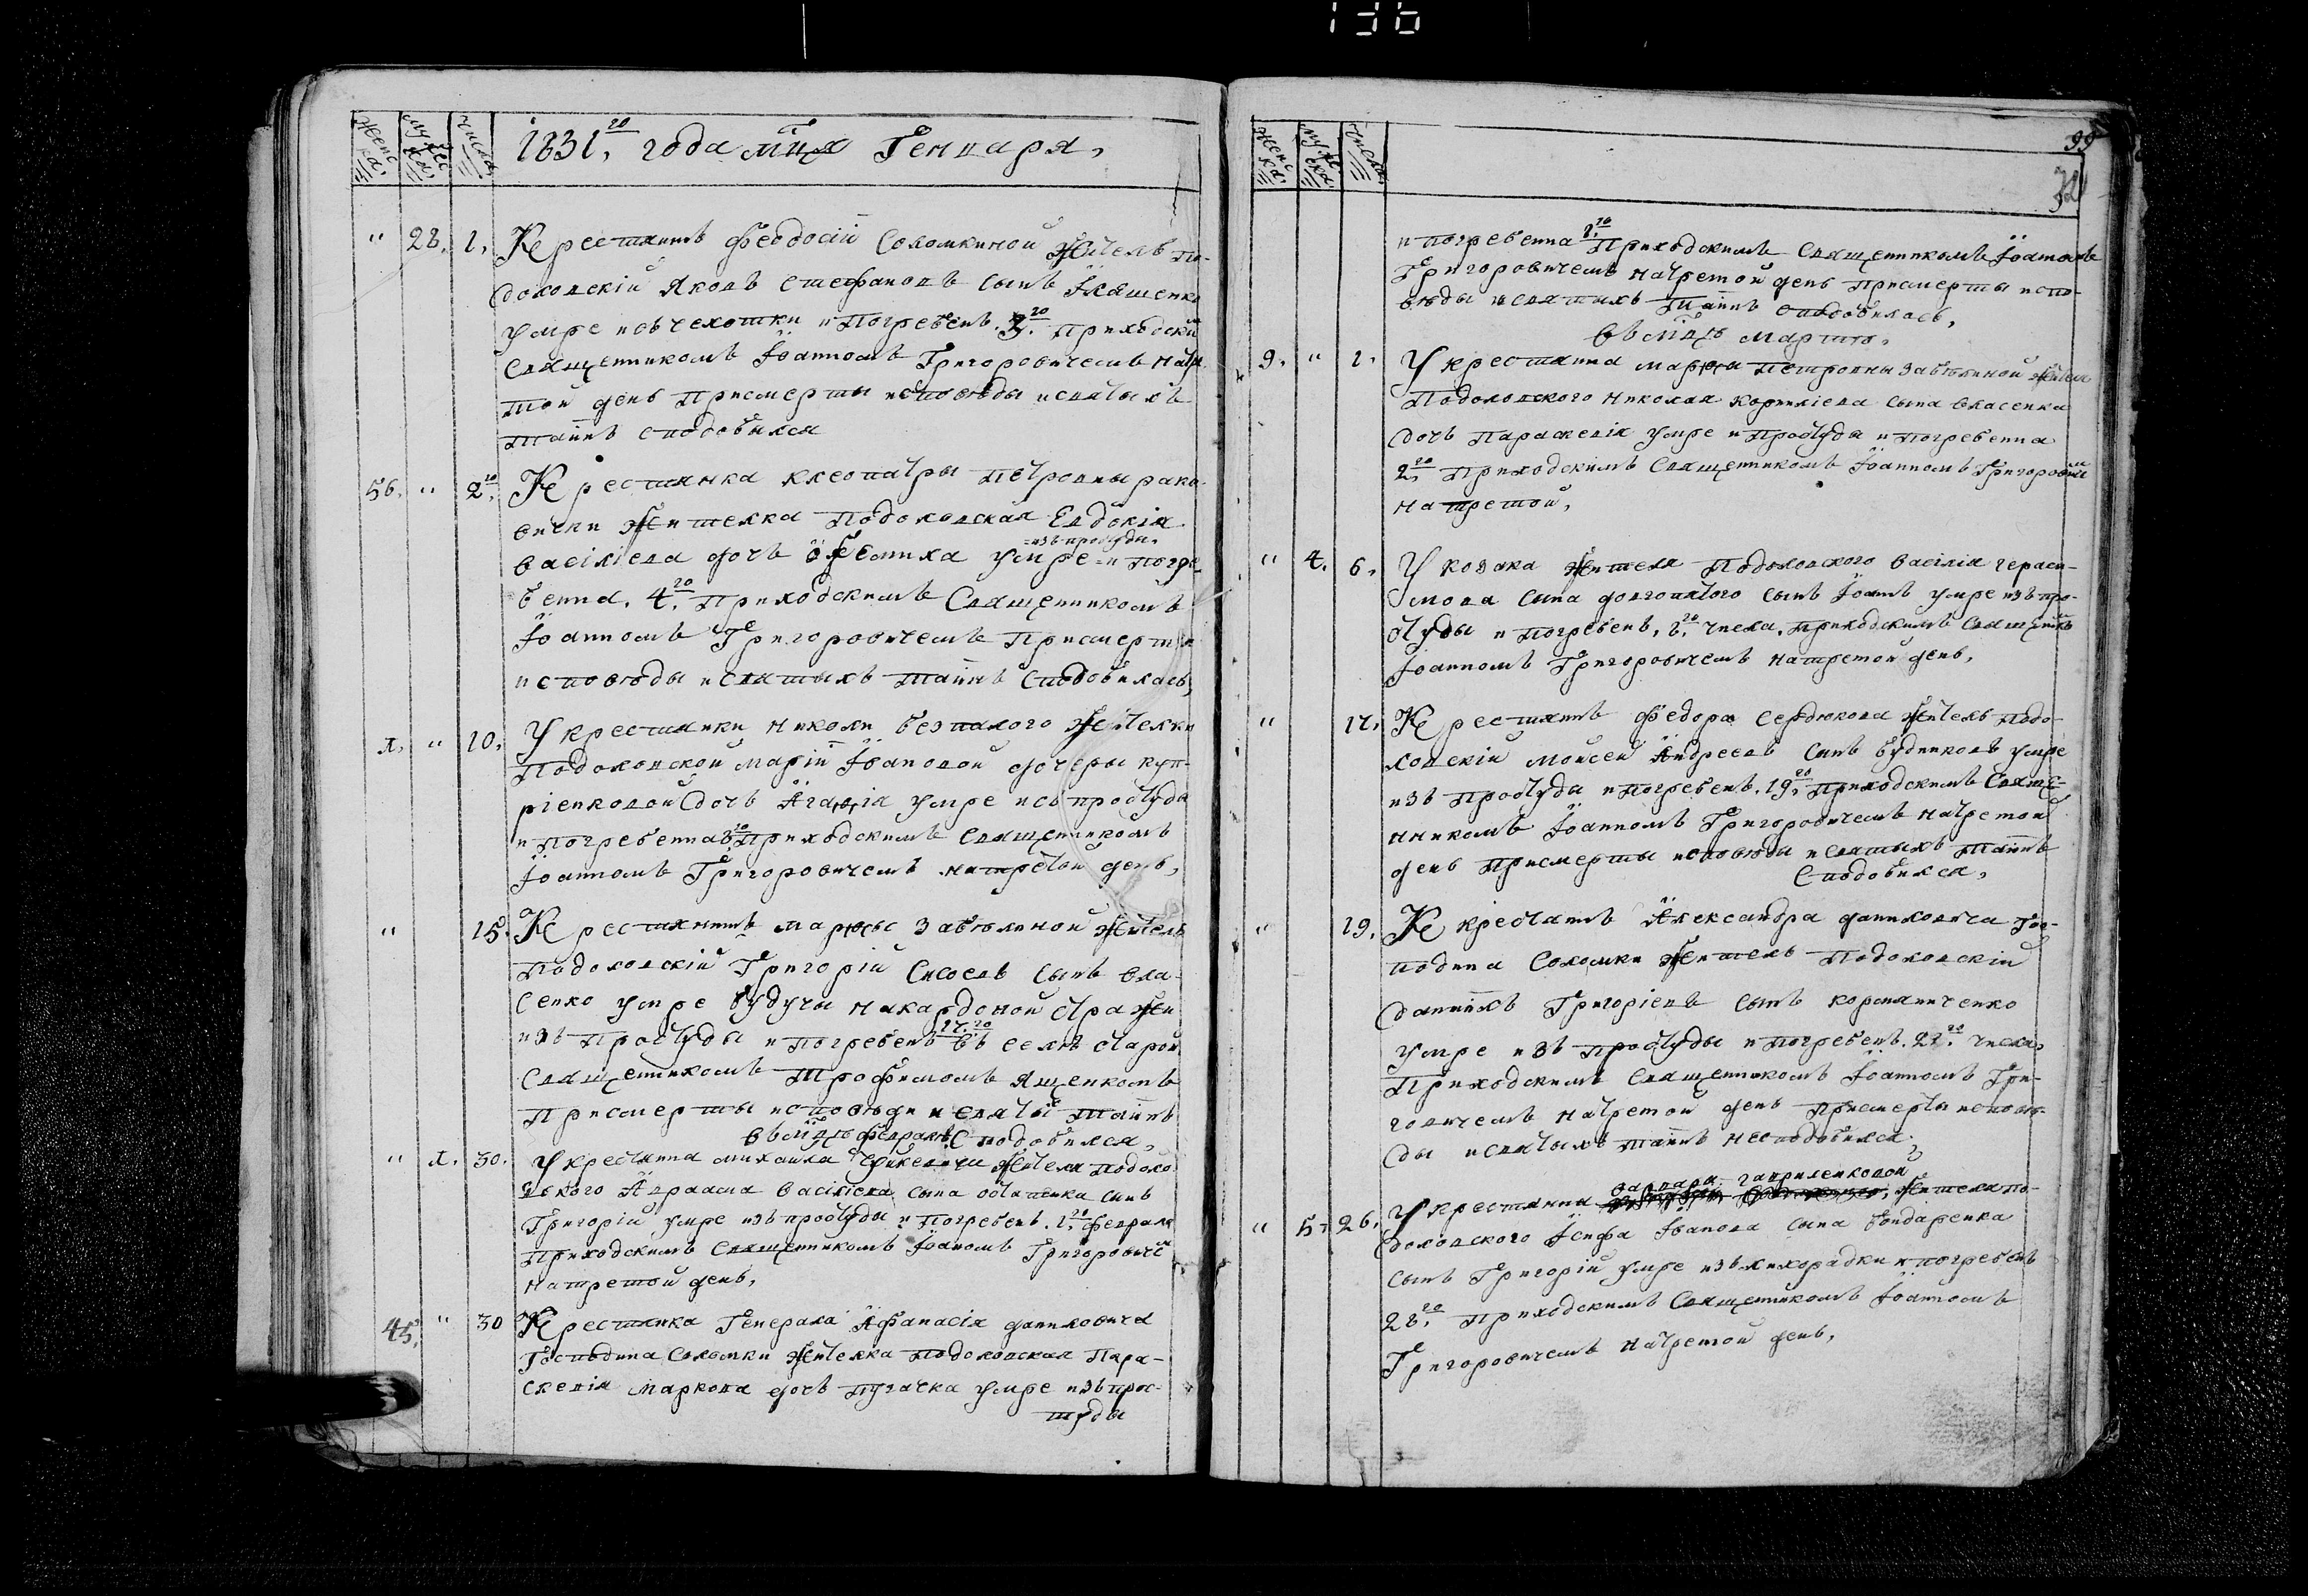 136
женс ка
муже ска
числа
1831.го года мца Генваря,
" 28. 1. Крестянинъ Феодосіи Соломкиной житель по-
доловскій Яковъ Стефановъ сынъ Іляшенко
умре исъ чехотки и погребенъ 3.го приходским
священникомъ Іоанномъ Григоровичемъ на тре
той день присмерты исповѣды и святыхъ
таинъ сподобился
56. " 2.го Крестянка Клеопатры Петровны рако-
вички жителка Подоловская Евдокія
=изъ простуди.
Василіева дочь умре = и погре-
бенна. 4.го приходскимъ священникомъ
Іоанномъ Григоровичемъ присмерти
исповѣды и святыхъ таинъ сподобилась,
" 10. У крестянки Николи безпалого жителки
Подоловской Маріи Іоановой дочеры куп-
ріенковой дочь Агафія умре исъ простуды
и погребенна приходскимъ священникомъ
Іоанномъ Григоровичемъ на третой день,
" 15. Крестянинъ Марфы Забѣлиной житель
Подоловскій Григорій Сисоевъ сынъ Вла-
сенко умре будучы на кардоной стражи
17.го
изъ простуды и погребенъ въ селѣ старой
священникомъ Трофимомъ Ященкомъ
присмерты исповѣди и святы таинъ
сподобился,
въ мцѣ февралѣ
" 30. У крестянина Михаила жителя подоло
вского Авраама Василіева сына Остапенка сынъ
Григорій умре изъ простуды и погребенъ. 1.го февраля
приходскимъ священникомъ Іоаномъ Григоровичем
на третой день,
45. " 30 Крестянка Генерала Афанасія Даниловича
Господина Соломки жителка подоловская Пара-
скевія Маркова дочь Пугачка умре изъ прос-
туды
99
женс ка
муже ска
числа
и погребенна приходскимъ священникомъ Іоаномъ
Григоровичемъ на третой день присмерты испо-
вѣды и святыхъ таинъ сподобилась,
въ мцѣ мартѣ.
9. " 1. У крестянина Марфы Петровны Забѣлиной жителя
Подоловского Николая Корниліева сына Власенка
дочь Параскевія умре и простуды и погребенна
2.го приходскимъ священникомъ Іоанномъ Григоровичем
на третой,
" 4. 6. У козака жителя Подоловского Василія Гераси-
мова сына Долгопятого сынъ Іоанъ умре изъ про-
студы и погребенъ, 8.го числа, приходскимъ священникъ
Іоанномъ Григоровичемъ на третой день,
" 17. Крестянинъ Федора Сердюкова житель подо-
ловскій Мойсей Андреевъ сынъ Будниковъ умре
изъ простуды и погребенъ. 19.го приходскимъ святе-
нникомъ Іоанномъ Григоровичемъ на третой
день присмерты исповѣды и святыхъ таинъ
сподобился,
" 19. К крестянинъ Александра Даниловича Гос-
подина Соломки житель Подоловскій
Даниилъ Григоріевъ сынъ
умре изъ простуды и погребенъ. 21.го числа,
приходскимъ священникомъ Іоанномъ Гри-
говичемъ на третой день присмерты исповѣ-
ды и святыхъ таинъ несподобился,
Варвари Гаврленковой
" 5. 26. У крестянина жителя по-
доловского Іосифа Іоанова сына Бондаренка
сынъ Григорій умре изъ лихорадки и погребенъ
28.го приходскимъ священникомъ Іоанномъ
Григоровичемъ на третой день,